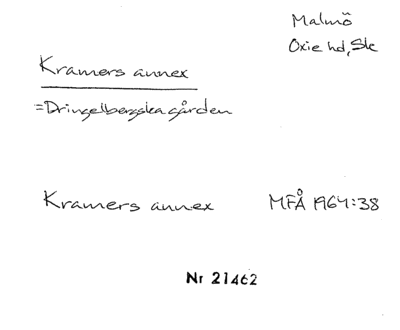 Malmö
Oxie hd, Sk
Kramers annex
=Dringelbergska gården
Kramers annex MFÅ 1964:38
Nr 21462